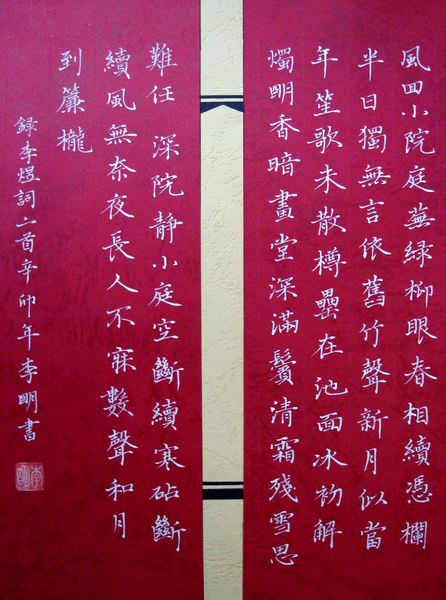 風回小院庭蕪綠柳眼春相續憑欄
半日獨無言依舊竹聲新月似當
年笙歌未散樽罍在池面冰初解
燭明香暗畫堂深滿鬢清霜殘雪思
難任 深院靜小庭空斷續寒砧斷
續風無奈夜長人不寐數聲和月
到簾櫳
録李煜詞二首辛卯年李明書